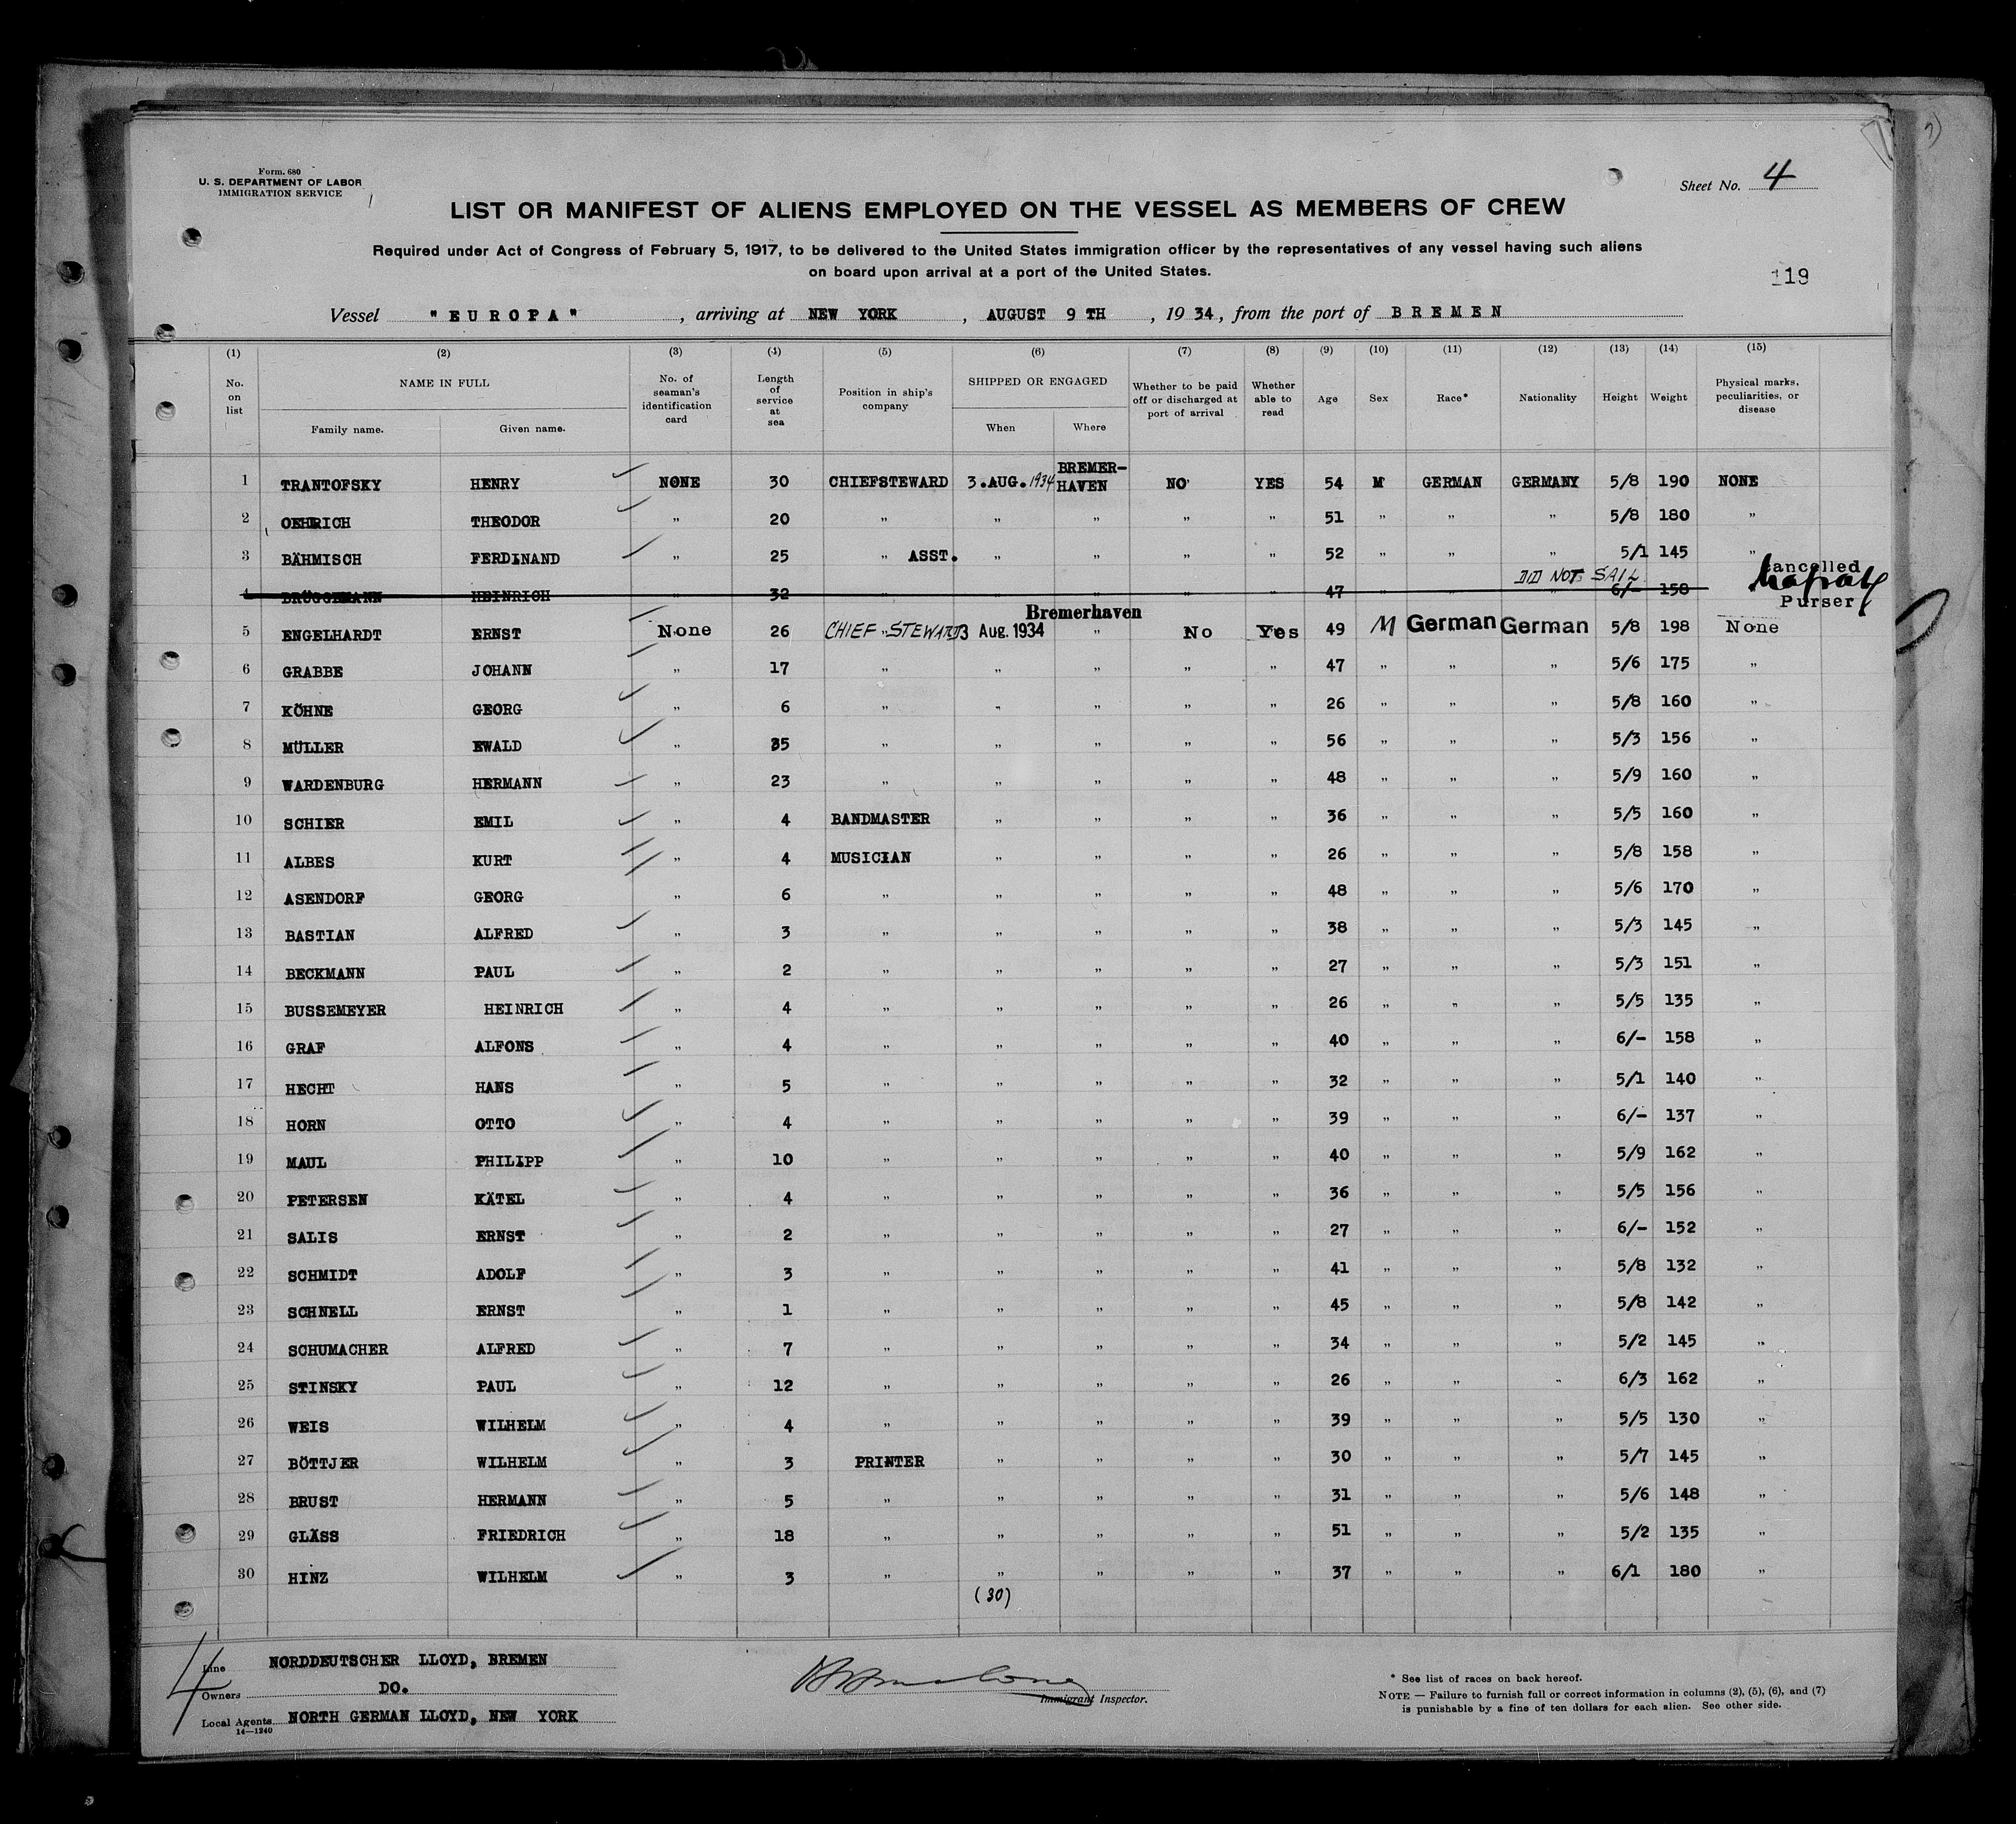 Form. 680
U. S. DEPARTMENT OF LABOR
IMMIGRATION SERVICE
Sheet No. 4
LIST OR MANIFEST OF ALIENS EMPLOYED ON THE VESSEL AS MEMBERS OF CREW
Required under Act of Congress of February 5, 1917, to be delivered to the United States immigration officer by the representatives of any vessel having such aliens
on board upon arrival at a port of the United States.
119
Vessel "EUROPA", arriving at NEW YORK, AUGUST 9 TH, 1934, from the port of BREMEN
(1) (2) (3) (4) (5) (6) (7) (8) (9) (10) (11) (12) (13) (14) (15)
No. on list NAME IN FULL Family name. Given name. No. of seaman's identification card Length of service at sea Position in ship's company SHIPPED OR ENGAGED When Where Whether to be paid off or discharged at port of arrival Whether able to read Age Sex Race* Nationality Height Weight Physical marks, peculiarities, or disease
1 TRANTOFSKY HENRY NONE 30 CHIEFSTEWARD 3.AUG.1934 BREMER-HAVEN NO YES 54 M GERMAN GERMANY 5/8 190 NONE
2 OEHRICH THEODOR " 20 " " " " " 51 " " " 5/8 180 "
3 BÄHMISCH FERDINAND " 25 " ASST. " " " " 52 " " " 5/1 145 "
4 BRÜGGEMANN HEINRICH " 32 " " " " " 47 " " DID NOT SAIL 6/- 158 Cancelled
Purser
5 ENGELHARDT ERNST None 26 CHIEF STEWARD 3 Aug. 1934 Bremerhaven " No Yes 49 M German German 5/8 198 None
6 GRABBE JOHANN " 17 " " " " " 47 " " " 5/6 175 "
7 KÖHNE GEORG " 6 " " " " " 26 " " " 5/8 160 "
8 MÜLLER EWALD " 35 " " " " " 56 " " " 5/3 156 "
9 WARDENBURG HERMANN " 23 " " " " " 48 " " " 5/9 160 "
10 SCHIER EMIL " 4 BANDMASTER " " " " 36 " " " 5/5 160 "
11 ALBES KURT " 4 MUSICIAN " " " " 26 " " " 5/8 158 "
12 ASENDORF GEORG " 6 " " " " " 48 " " " 5/6 170 "
13 BASTIAN ALFRED " 3 " " " " " 38 " " " 5/3 145 "
14 BECKMANN PAUL " 2 " " " " " 27 " " " 5/3 151 "
15 BUSSEMEYER HEINRICH " 4 " " " " " 26 " " " 5/5 135 "
16 GRAF ALFONS " 4 " " " " " 40 " " " 6/- 158 "
17 HECHT HANS " 5 " " " " " 32 " " " 5/1 140 "
18 HORN OTTO " 4 " " " " " 39 " " " 6/- 137 "
19 MAUL PHILIPP " 10 " " " " " 40 " " " 5/9 162 "
20 PETERSEN KÄTEL " 4 " " " " " 36 " " " 5/5 156 "
21 SALIS ERNST " 2 " " " " " 27 " " " 6/- 152 "
22 SCHMIDT ADOLF " 3 " " " " " 41 " " " 5/8 132 "
23 SCHNELL ERNST " 1 " " " " " 45 " " " 5/8 142 "
24 SCHUMACHER ALFRED " 7 " " " " " 34 " " " 5/2 145 "
25 STINSKY PAUL " 12 " " " " " 26 " " " 6/3 162 "
26 WEIS WILHELM " 4 " " " " " 39 " " " 5/5 130 "
27 BÖTTJER WILHELM " 3 PRINTER " " " " 30 " " " 5/7 145 "
28 BRUST HERMANN " 5 " " " " " 31 " " " 5/6 148 "
29 GLÄSS FRIEDRICH " 18 " " " " " 51 " " " 5/2 135 "
30 HINZ WILHELM " 3 " " " " " 37 " " " 6/1 180 "
(30)
4
Line NORDDEUTSCHER LLOYD, BREMEN
Owners DO.
Local Agents NORTH GERMAN LLOYD, NEW YORK
14—1240
Immigrant Inspector.
* See list of races on back hereof.
NOTE — Failure to furnish full or correct information in columns (2), (5), (6), and (7)
is punishable by a fine of ten dollars for each alien. See other side.